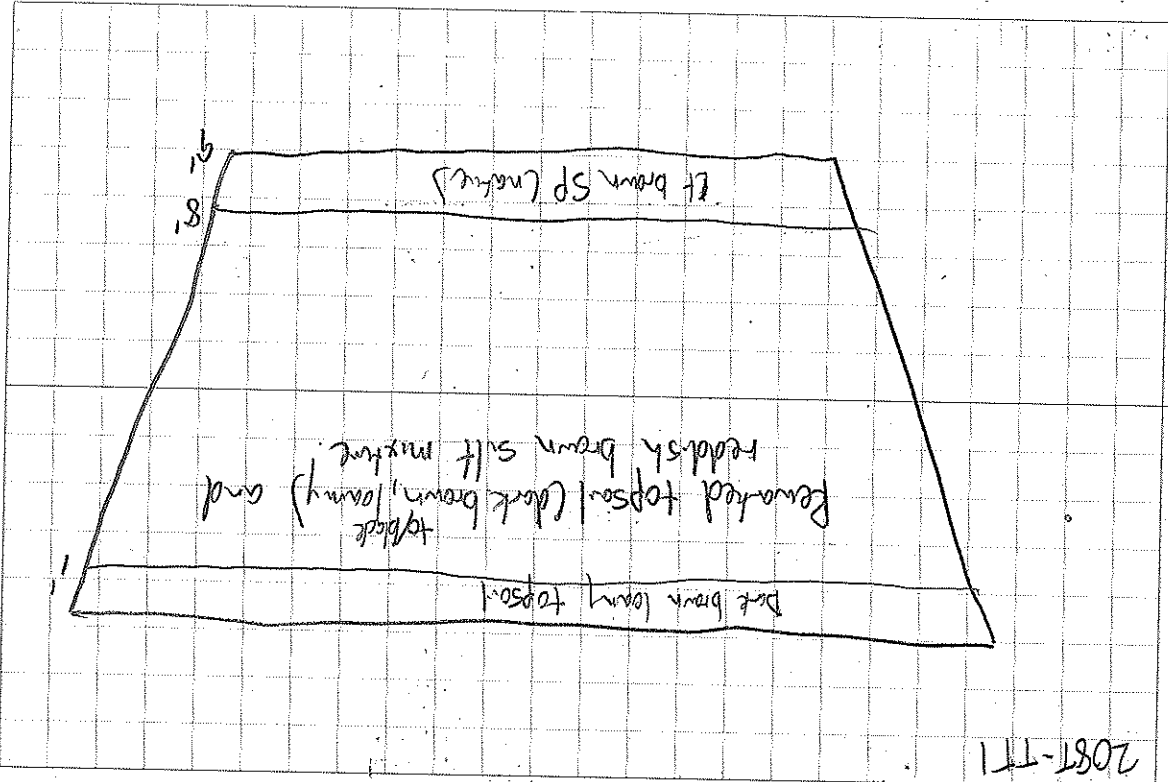 208T-TT1
Dark brown loamy topsoil
1'
to black
Reworked topsoil (dark brown, loamy) and
reddish brown silt mixture.
8'
Lt brown SP (native)
9'